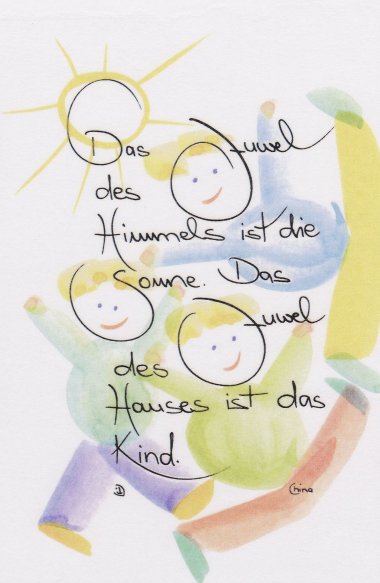 Das Juwel
des
Himmels ist die
Sonne. Das
Juwel
des
Hauses ist das
Kind.
China